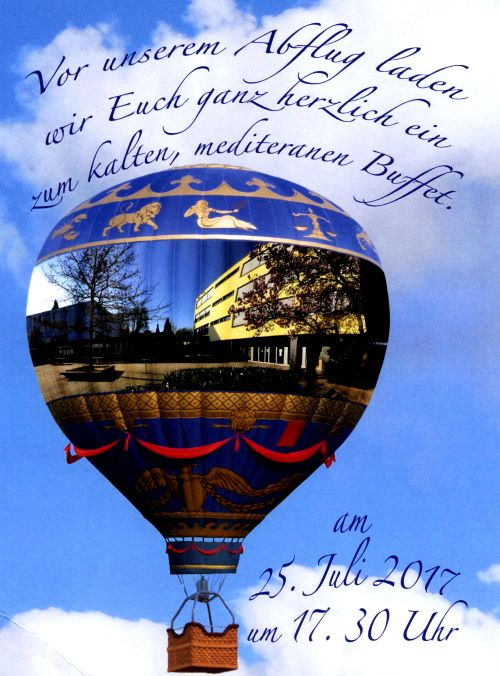 Vor unserem Abflug laden
wir Euch ganz herzlich ein
zum kalten, mediteranen Buffet.
am
25. Juli 2017
um 17. 30 Uhr